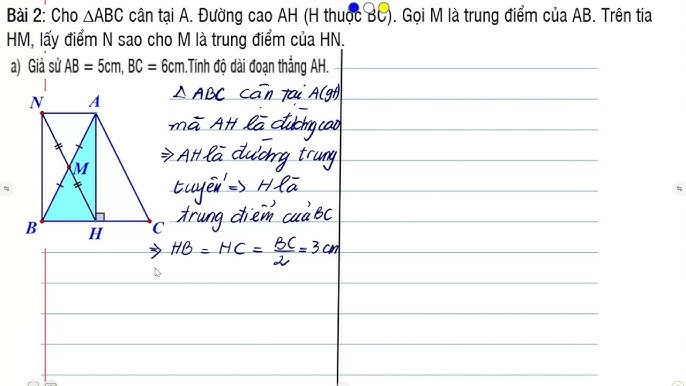 Bài 2: Cho △ABC cân tại A. Đường cao AH (H thuộc BC). Gọi M là trung điểm của AB. Trên tia
HM, lấy điểm N sao cho M là trung điểm của HN.
a) Giả sử AB = 5cm, BC = 6cm.Tính độ dài đoạn thẳng AH.
N A
M
B H C
△ ABC cân tại A(gt)
mà AH là đường cao
⇒ AH là đường trung
tuyến ⇒ H là
trung điểm của BC
⇒ HB = HC = BC/2 = 3 cm